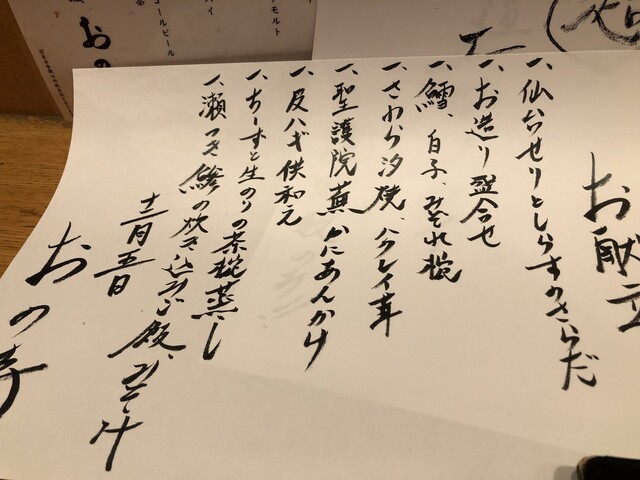 お献立
一、仙台せりとしらすのさらだ
一、お造り盛合せ
一、鱈、白子、みぞれ椀
一、さわら汐焼、ハクレイ茸
一、聖護院蕪かにあんかけ
一、皮ハギ供和え
一、ちーずと生のりの茶碗蒸し
一、瀬つき鯵の炊き込みご飯、みそ汁
十二月五日
おの寺
コールビール
モルト
おの